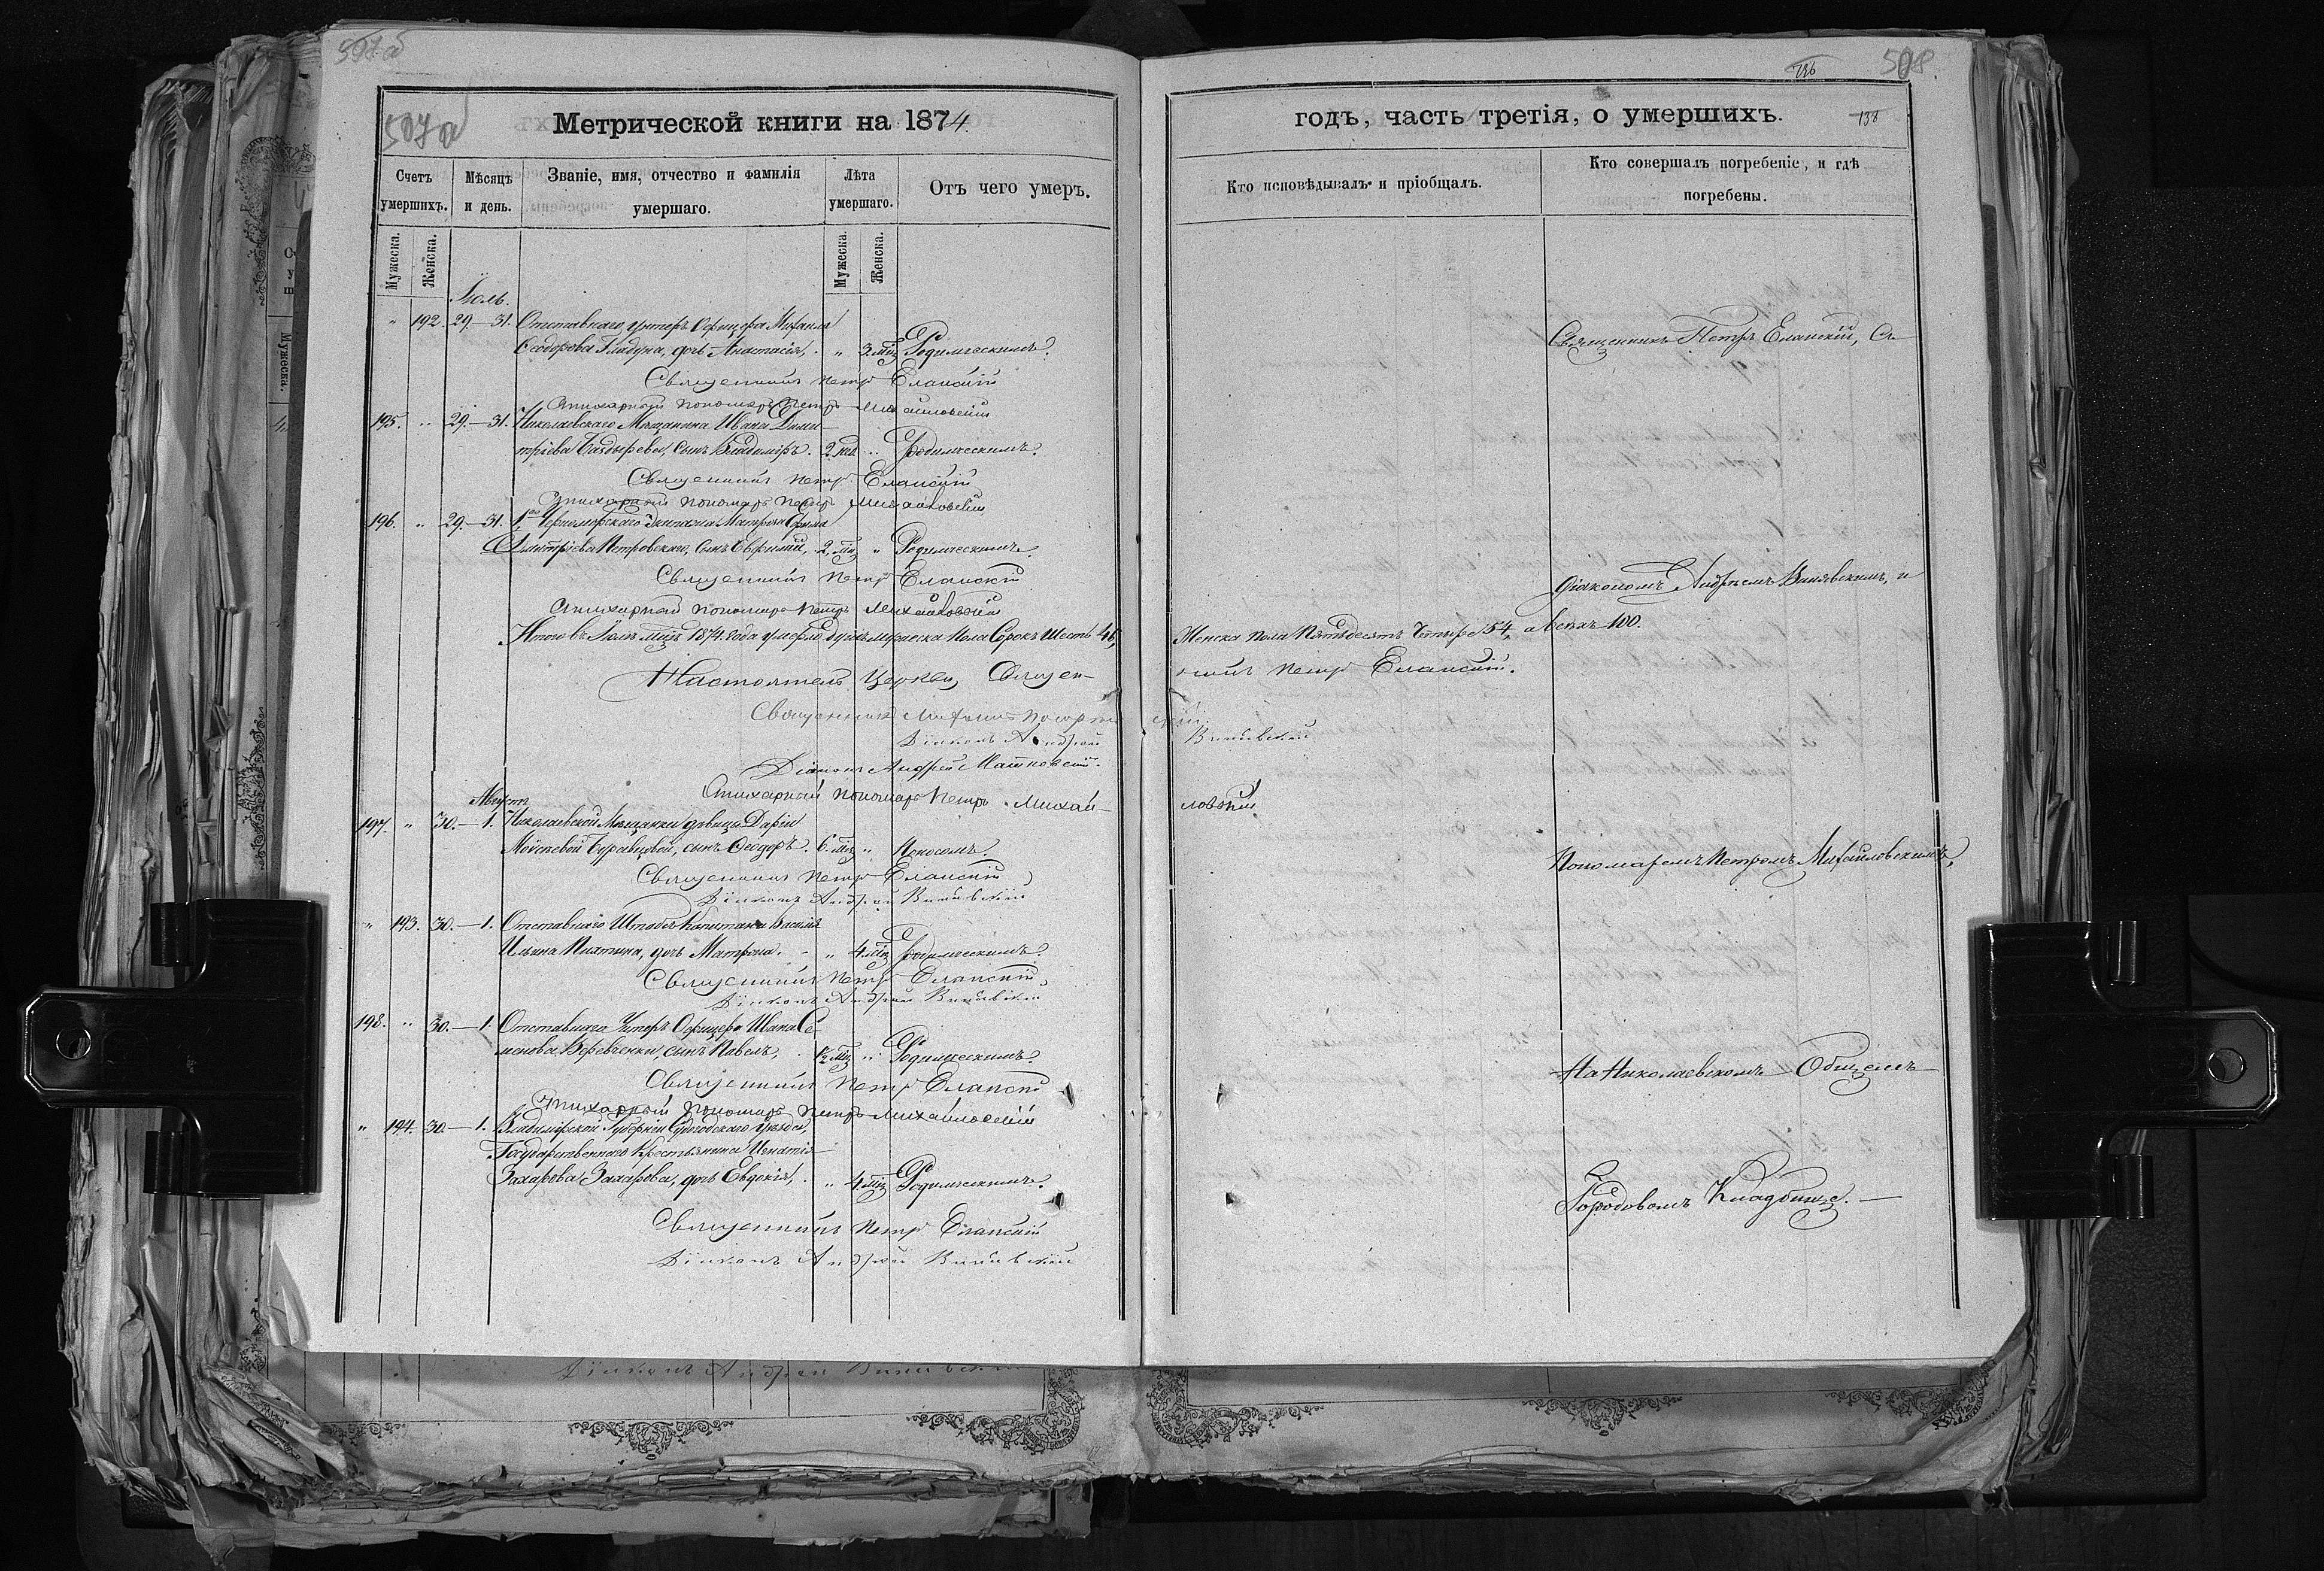 507а
507а
Метрической книги на 1874
Счетъ умершихъ.
Мѣсяцъ и день.
Званіе, имя, отчество и фамилія умершаго.
Лѣта умершаго.
Отъ чего умеръ.
Мужеска.
Женска.
Мужеска.
Женска.
Іюль.
" 192. 29.—31. Отставнаго Унтеръ Офицера Михаила
Ѳеодорова Гладуна, дочь Анастасія, " 3 мѣц Родимческимъ.
Священникъ Петръ Еланскій
Стихарный Пономарь Петръ Михайловскій
195. " 29.—31. Николаевскаго Мѣщанина Ивана Дими-
тріева сынъ Владиміръ. 2 нед " Родимческимъ.
Священникъ Петръ Еланскій
Стихарный Пономарь Петръ Михайловскій
196. " 29.—31. 1го Черноморскаго Экипажа Матроса
Димитріева Петровскаго, сынъ Евфимій, 2 мѣц " Родимческимъ.
Священникъ Петръ Еланскій
Стихарный Пономарь Петръ Михайловскій
Итого въ Іюлѣ мѣцѣ 1874 года умерло душъ мужеска пола Сорокъ Шесть 46,
Настоятель Церкви Священ-
Священникъ
Діаконъ Андрей
Діаконъ Андрей
Стихарный Пономарь Петръ Михай-
Августъ
197. " 30.—1. Николаевской Мѣщанки дѣвицы Даріи
Моисеевой сынъ Ѳеодоръ. 6 мѣц " Поносомъ.
Священникъ Петръ Еланскій
Діаконъ Андрей
" 193. 30.—1. Отставнаго Штабсъ Капитана Василія
Ильина дочь Матрона. " 4 мѣц Родимческимъ.
Священникъ Петръ Еланскій
Діаконъ Андрей
198. " 30.—1. Отставнаго Унтеръ Офицера Ивана Се-
менова Веревченки, сынъ Павелъ, ½ мѣц " Родимческимъ.
Священникъ Петръ Еланскій
Стихарный Пономарь Петръ Михайловскій
" 194. 30.—1. Владимірской Губерніи Судогодскаго Уѣзда,
Государственнаго Крестьянина Игнатія
Захарова Захарова, дочь Евдокія, " 4 мѣц Родимческимъ.
Священникъ Петръ Еланскій
Діаконъ Андрей
Діаконъ Андрей
508
138
годъ, часть третія, о умершихъ.
Кто исповѣдывалъ и пріобщалъ.
Кто совершалъ погребеніе, и гдѣ погребены.
Священникъ Петръ Еланскій, Съ
Діакономъ Андреемъ и
Женска пола Пятьдесятъ Четыре 54, а всѣхъ 100.
никъ Петръ Еланскій.
ловскій
Пономаремъ Петромъ Михайловскимъ,
На Николаевскомъ Общемъ
Городовомъ Кладбищѣ.—